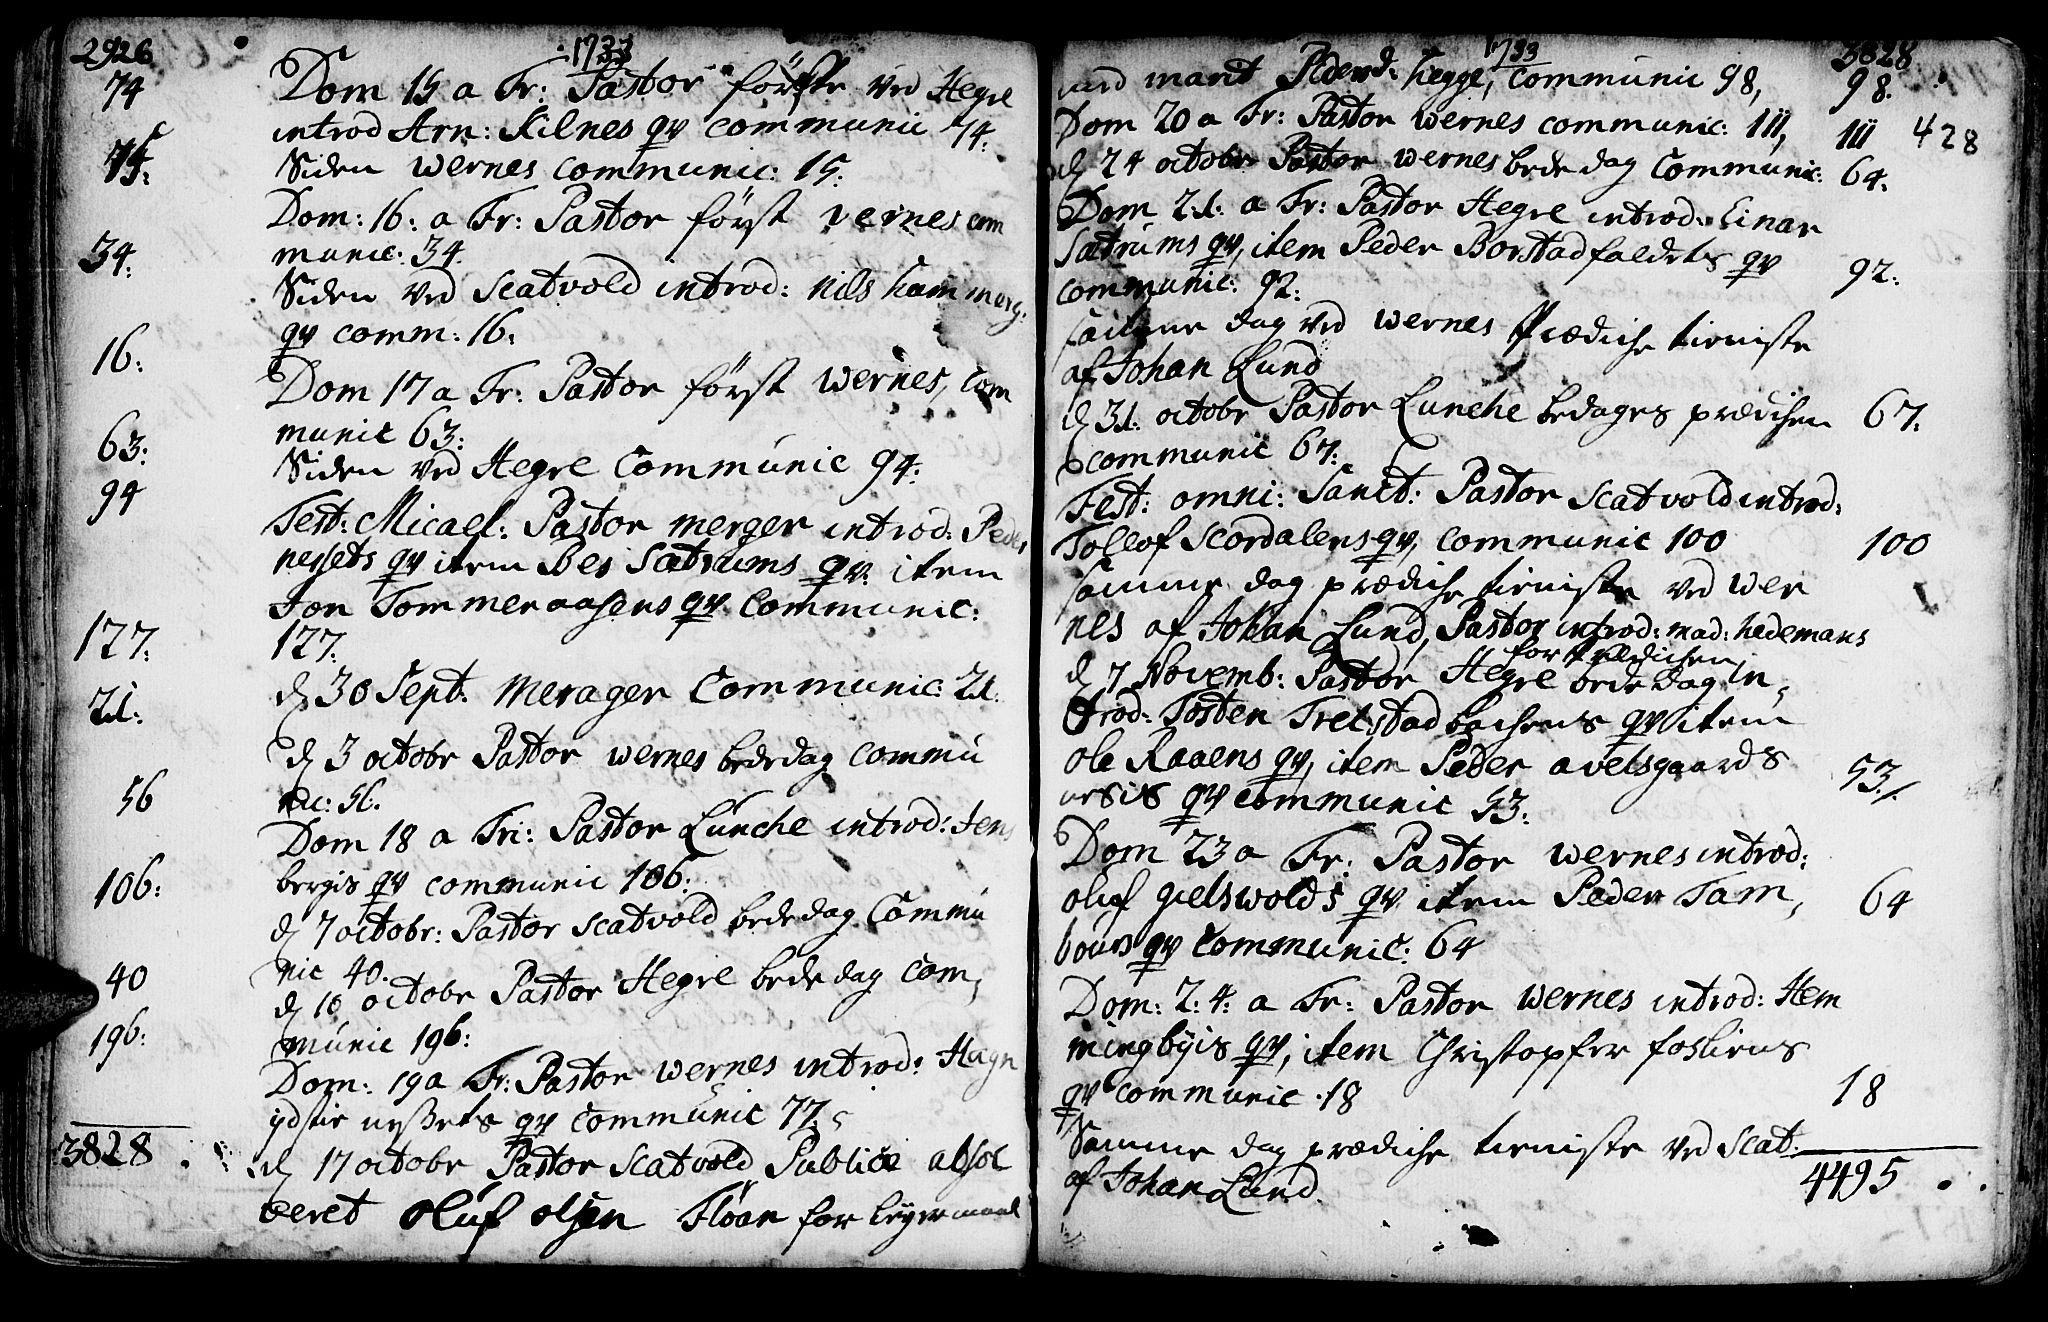 2926 1733
74 Dom 15 a Tr: Pastor förste ved Hegre
introd Arn: Kilnes qv communic 74:
15: Siden wernes communic: 15:
Dom: 16: a Tr: Pastor först vernes com
34: munic: 34.
Siden ved scatvold introd: nils hammerg:
16: qv comm: 16:
Dom 17 a Tr: Pastor först wernes, com
63: munic 63:
94 Siden ved Hegre communic 94:
Fest: Micael: Pastor merger introd: Peder
nessets qv item Bes Sætrums qv: item
Jon Tommeraasens qv. communic:
177: 177:
21: d 30 Sept. Merager Communic: 21:
d 3 octobr Pastor wernes bededag commu
56 nic: 56.
Dom 18 a Tri: Pastor Lünche introd: Jens
106: bergis qv communic 106:
d 7 octobr: Pastor scatvold bededag Commu
40 nic 40.
d 10 octobr Pastor Hegre bededag com,
196: munic 196:
Dom: 19 a Tr: Pastor wernes introd: Hagn
ydstie nyssets qv communic 77:
3828 d 17 octobr Pastor Scatvold Publice absol
veret Oluf olsen Flöan for leyermaal
1733 3828
med marit Pedersd: hegge, communic 98, 98.
Dom 20 a Tr: Pastor wernes communic: 111, 111 428
d 24 octobr Pastor wernes bededag Communic: 64:
Dom 21: a Tr: Pastor Hegre introd: Einar
Sætrums qv, item Peder Borstadfaldets qv
communic: 92: 92:
samme dag ved wernes Prædiche tieniste
af Johan Lund
d 31: octobr Pastor Lunche bedages prædichen 67:
communic 67:
Fest: omni: Sanct: Pastor Scatvold introd:
Tollof Scordalens qv, communic 100 100
samme dag prædiche tieniste ved wer
nes af Johan Lund, Pastor introd: mad: hedemans
for prædichen,
d 7 Novemb: Pastor Hegre bededag in,
trod: Tosten Trelstad bachens qv item
ole Raaens qv, item Peder avelsgaards
qv communic 53. 53:/.
Dom 23 a Tr: Pastor wernes introd:
oluf gielswolds qv item Peder Tam, 64
bours qv communic: 64
Dom: 2:4: a Tr: Pastor wernes introd: Hem
mingbyis qv, item Christopfer fosliens
qv communic .18 18
Samme dag prædiche tieniste ved Scat:
af Johan Lund. 4495